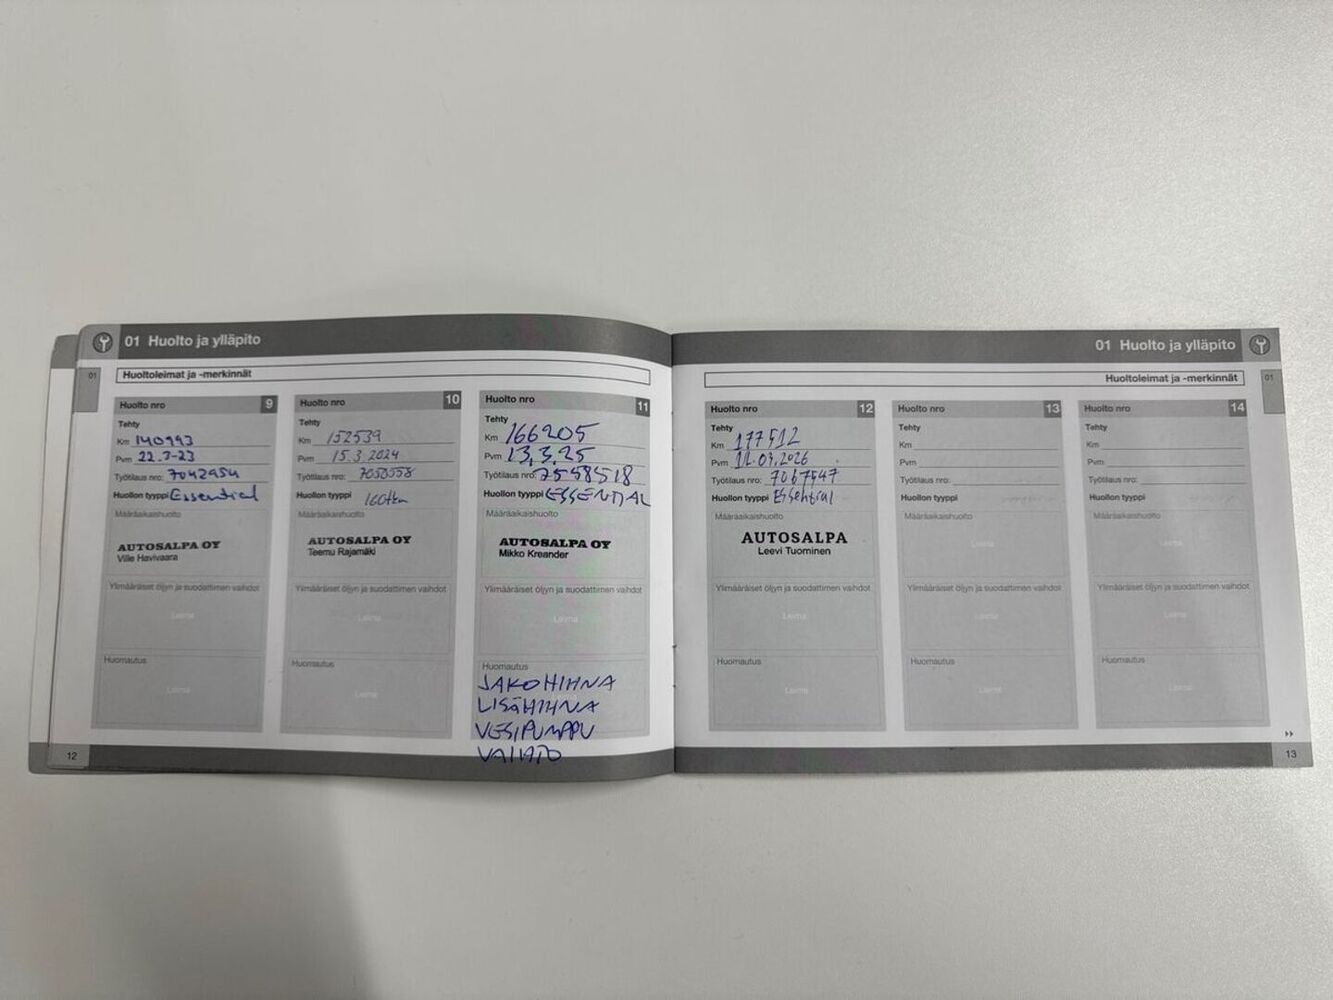 01 Huolto ja ylläpito
01
Huoltoleimat ja -merkinnät
Huolto nro 9
Tehty
Km 140993
Pvm 22.3-23
Työtilaus nro: 7042954
Huollon tyyppi Essential
Määräaikaishuolto
AUTOSALPA OY
Ville Havivaara
Ylimääräiset öljyn ja suodattimen vaihdot
Leima
Huomautus
Leima
Huolto nro 10
Tehty
Km 152539
Pvm 15.3.2024
Työtilaus nro: 7058558
Huollon tyyppi 160tkm
Määräaikaishuolto
AUTOSALPA OY
Teemu Rajamäki
Ylimääräiset öljyn ja suodattimen vaihdot
Leima
Huomautus
Leima
Huolto nro 11
Tehty
Km 166205
Pvm 13.3.25
Työtilaus nro: 7558518
Huollon tyyppi ESSENTIAL
Määräaikaishuolto
AUTOSALPA OY
Mikko Kreander
Ylimääräiset öljyn ja suodattimen vaihdot
Leima
Huomautus
JAKOHIHNA
LISÄHIHNA
VESIPUMPPU
VAIHTO
12
01 Huolto ja ylläpito
Huoltoleimat ja -merkinnät
01
Huolto nro 12
Tehty
Km 177512
Pvm
Työtilaus nro: 7067547
Huollon tyyppi Essential
Määräaikaishuolto
AUTOSALPA
Leevi Tuominen
Ylimääräiset öljyn ja suodattimen vaihdot
Leima
Huomautus
Leima
Huolto nro 13
Tehty
Km
Pvm
Työtilaus nro:
Huollon tyyppi
Määräaikaishuolto
Leima
Ylimääräiset öljyn ja suodattimen vaihdot
Leima
Huomautus
Leima
Huolto nro 14
Tehty
Km
Pvm
Työtilaus nro:
Huollon tyyppi
Määräaikaishuolto
Leima
Ylimääräiset öljyn ja suodattimen vaihdot
Leima
Huomautus
Leima
13